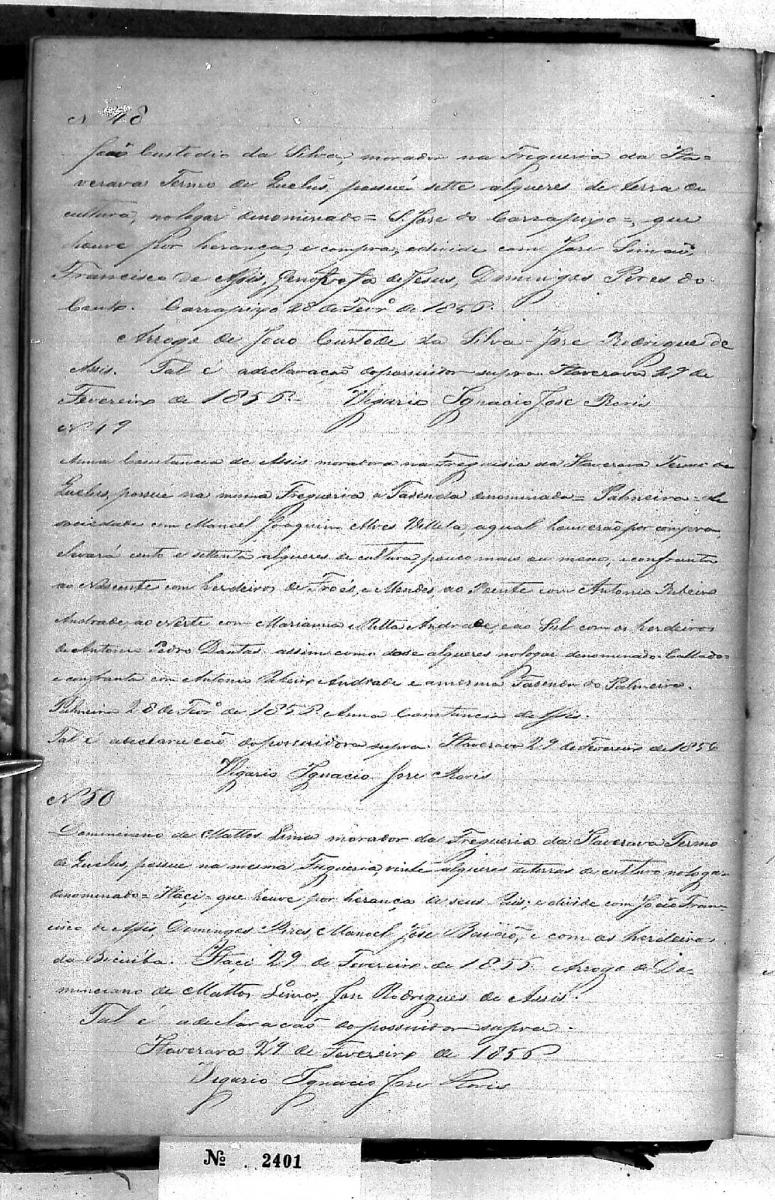 N 48
João Custodio da Silva, morador na Freguesia da Ita-
verava Termo de Queluz, possue sette alqueres de terra de
cultura, no logar denominado = S. Jose do Carrapixo =, que
houve por herança, e compra, e divide com Jose Simão,
Francisco de Assis, Genofrofa de Jesus, Domingos Peres do
Couto. Carrapixo 28 de Fevrº de 1856.
Arrogo de João Custode da Silva - Jose Rodrigue de
Assis. Tal é a declaração do possuitor supra. Itaverava 29 de
Fevereiro de 1856. Vigario Ignacio Jose
Nº 49
Anna Constancia de Assis moradora na Freguisia da Itaverava Termo de
Queluz, possue na mesma Freguesia a Fazenda denominada = Palmeira = de
sociedade com Manoel Joaquim Alves Villela, a qual houverão por compra,
e levará cento e settenta alqueres de cultura pouco mais ou meno, e confronta
ao Nascente com herdeiros de Froés, e Mendes ao Poente com Antonio Ribeiro
Andrade ao Norte com Marianna Andrade, e ao Sul com os herdeiros
de Antonio Pedro Dantas. assim como dose alqueres no logar denominado
e confronta com Antonio Ribeiro Andrade e a mesma Fazenda do Palmeira.
Palmeira 28 de Fevrº de 1856. Anna Constancia de Assis.
Tal é a declaração do possuidora supra. Itaverava 29 de Fevereiro de 1856
Vigario Ignacio Jose
Nº 50
Dominciano de Mattos Lima morador da Freguesia da Itaverava Termo
de Queluz, possue na mesma Freguesia vinte alqueres de terras de cultura no loga
denominado = Itaci = que houve por herança de seus Pais; e divide com João Fran-
cisco de Assis, Domingos Peres, Manoel Jose Baião, e com os herdeiros
da Bicuiba. Itaçi 29 de Fevereiro de 1856. Arrogo de Do-
minciano de Mattos Lima, Jose Rodrigues de Assis.
Tal e a declaração do possuitor supra.
Itaverava 29 de Fevereiro de 1856
Vigario Ignacio Jose
Nº . 2401